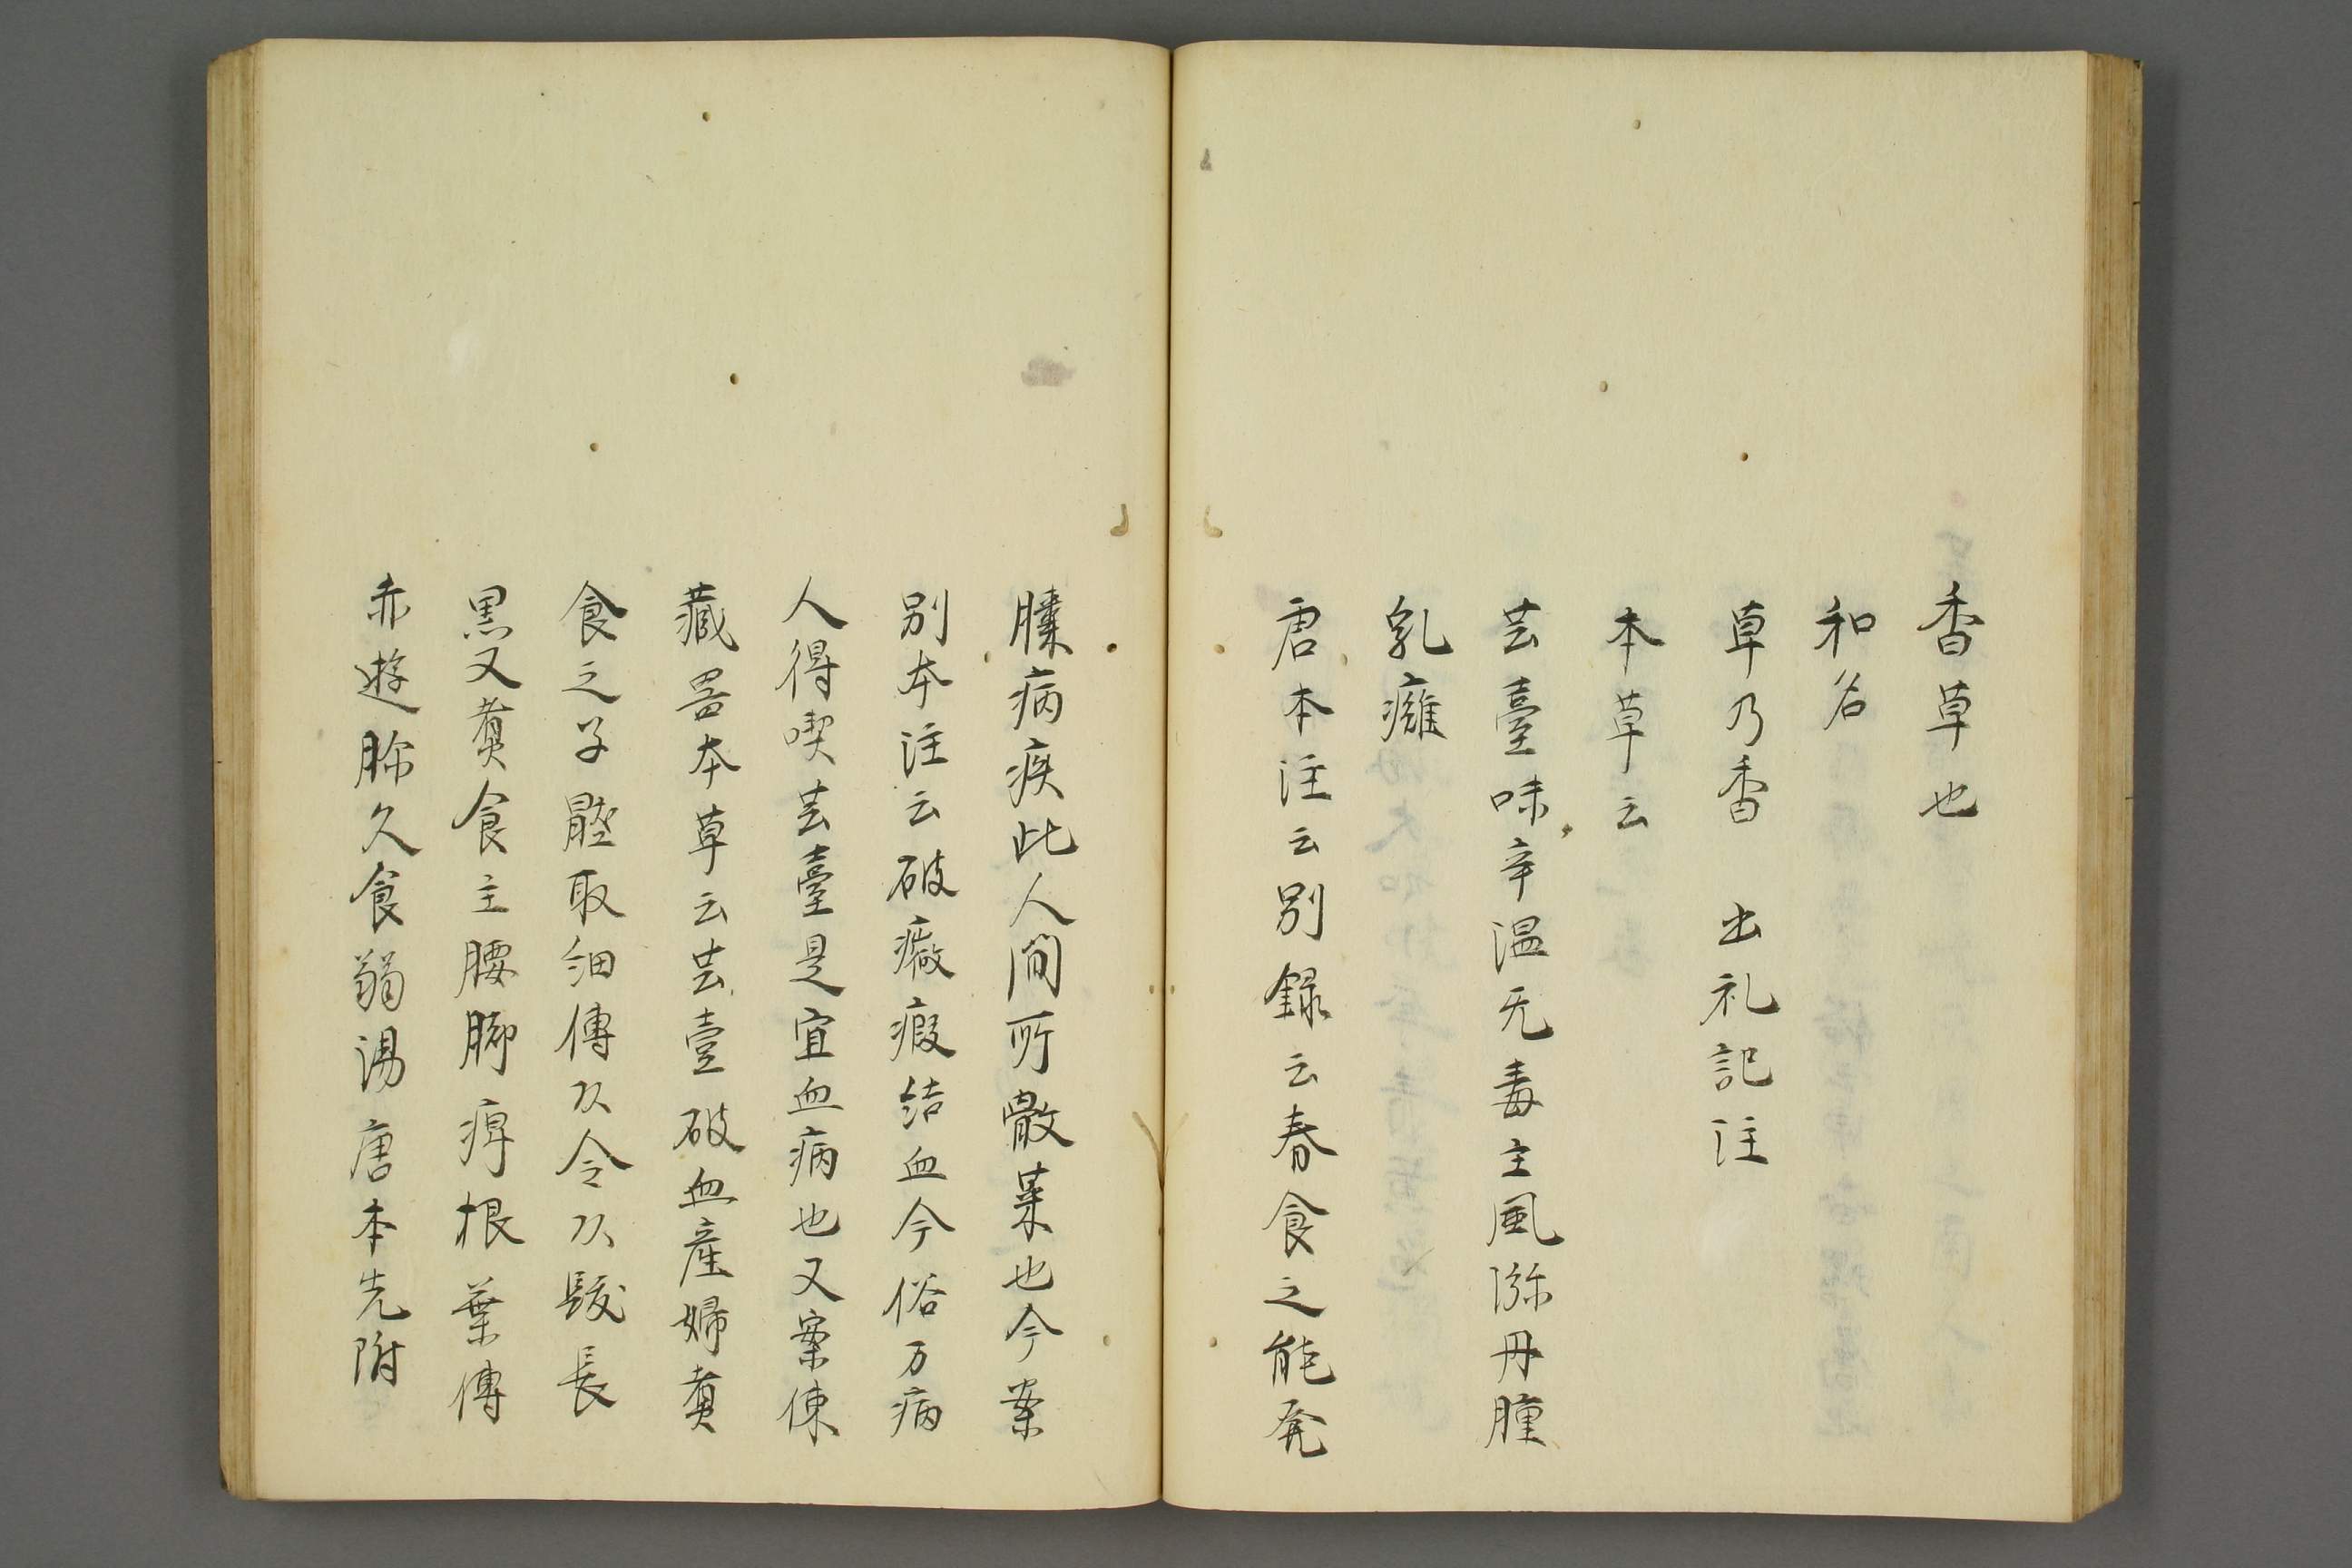 香草也
和名
草乃香 出礼記注
本草云
芸臺味辛温无毒主風㳽丹腫
乳癰
唐本注云別録云春食之能発
膝病疾此人間所噉菜也今案
別本注云破癥瘕結血今俗方病
人得喫芸臺是宜血病也又案陳
藏器本草云芸臺破血産婦煑
食之子壓取細傅以令以髪長
黒又煑食主腰脚痺根葉傅
赤遊胗久食弱湯唐本先附